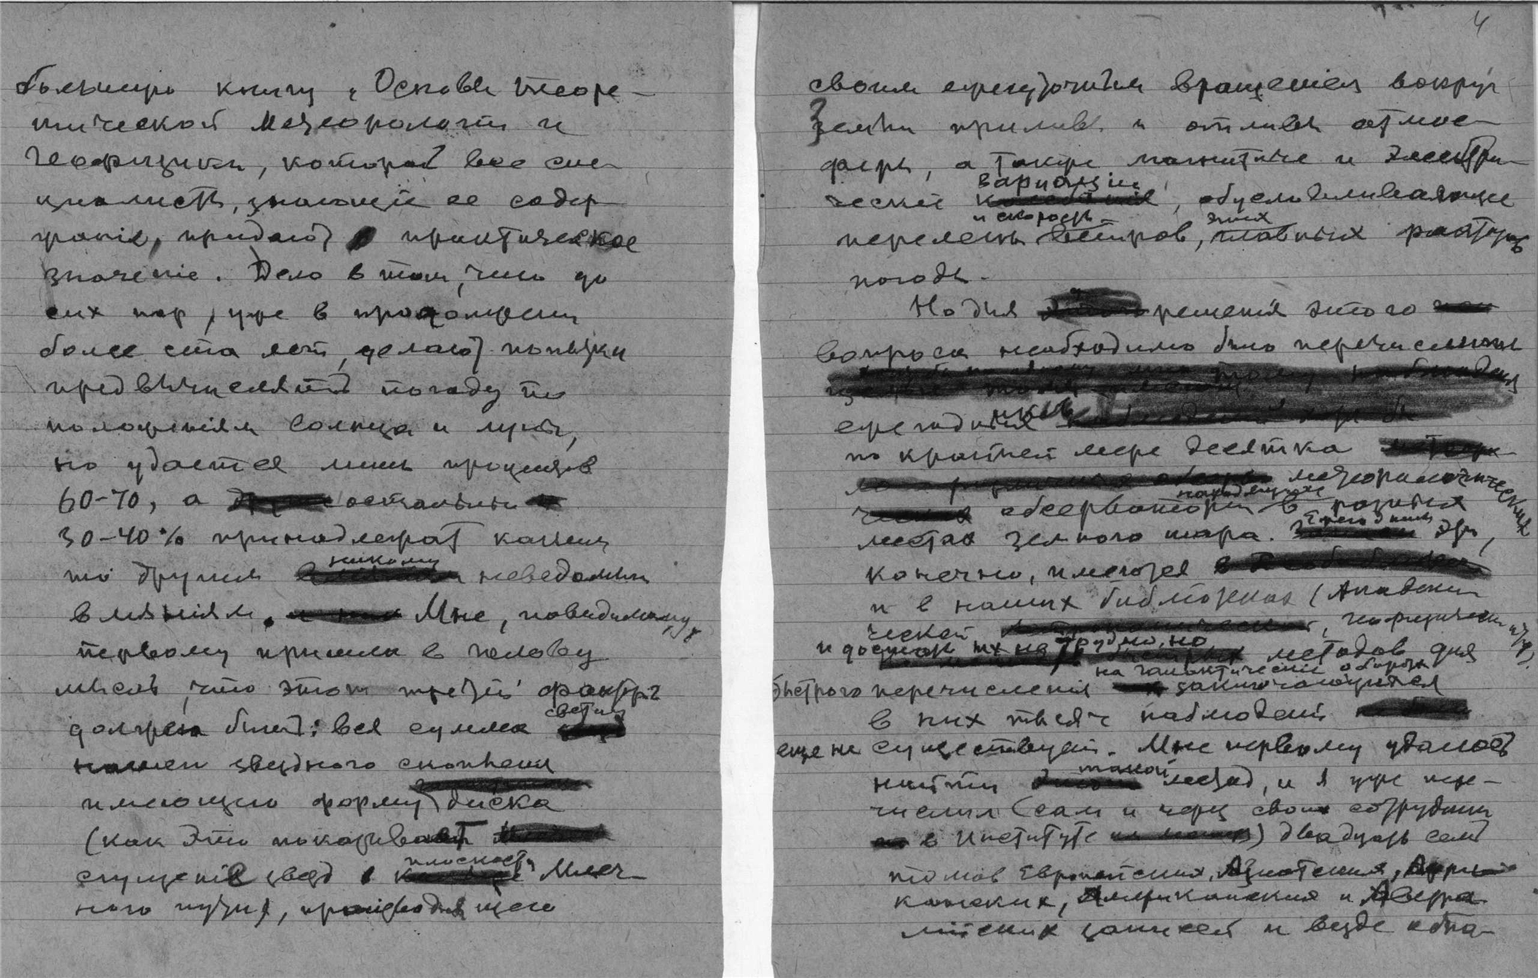 большую книгу „Основы теоре-
тической Метеорологии и
Геофизики, которой все спе-
циалисты, знающие ее содер-
жание, придают практическое
значение. Дело в том, что до
сих пор, уже в продолжении
более ста лет, делают попытки
предвычислять погоду по
положениям Солнца и луны,
но удается лишь процентов
60-70, а остальные
30-40% принадлежат каким
то другим никому неведомым
влияниям. Мне, повидимому,
первому пришла в голову
мысль, что этот третий фактор
должен быть: вся сумма светил
нашего звездного скопления
имеющего форму диска
(как это показывает
сгущение звезд в плоскости Млеч-
ного пути), производящего
4
своим ежесуточным вращением вокруг
Земли приливы и отливы атмос-
феры, а также магнитные и электри-
ческие вариации, обусловливающие
перемены и скорость ветров, этих главных факторов
погоды.
Но для решения этого
вопроса необходимо было перечисление
ежегодников
по крайней мере десятка
метеорологических
обсерваторий находящихся в разных
местах земного шара. Ежегодники эти,
конечно, имеются
и в наших библиотеках (Академи-
ческой
и достать их не трудно, но методов для
быстрого перечисления на галактические обороты заключающихся
в них тысяч наблюдений
еще не существует. Мне первому удалось
найти такой метод, и я уже пере-
числил (сам и через своих сотрудни
ков в Институте) двадцать семь
томов Европейских, Азиатских, Афри-
канских, Американских и Австра-
лийских записей и везде обна-